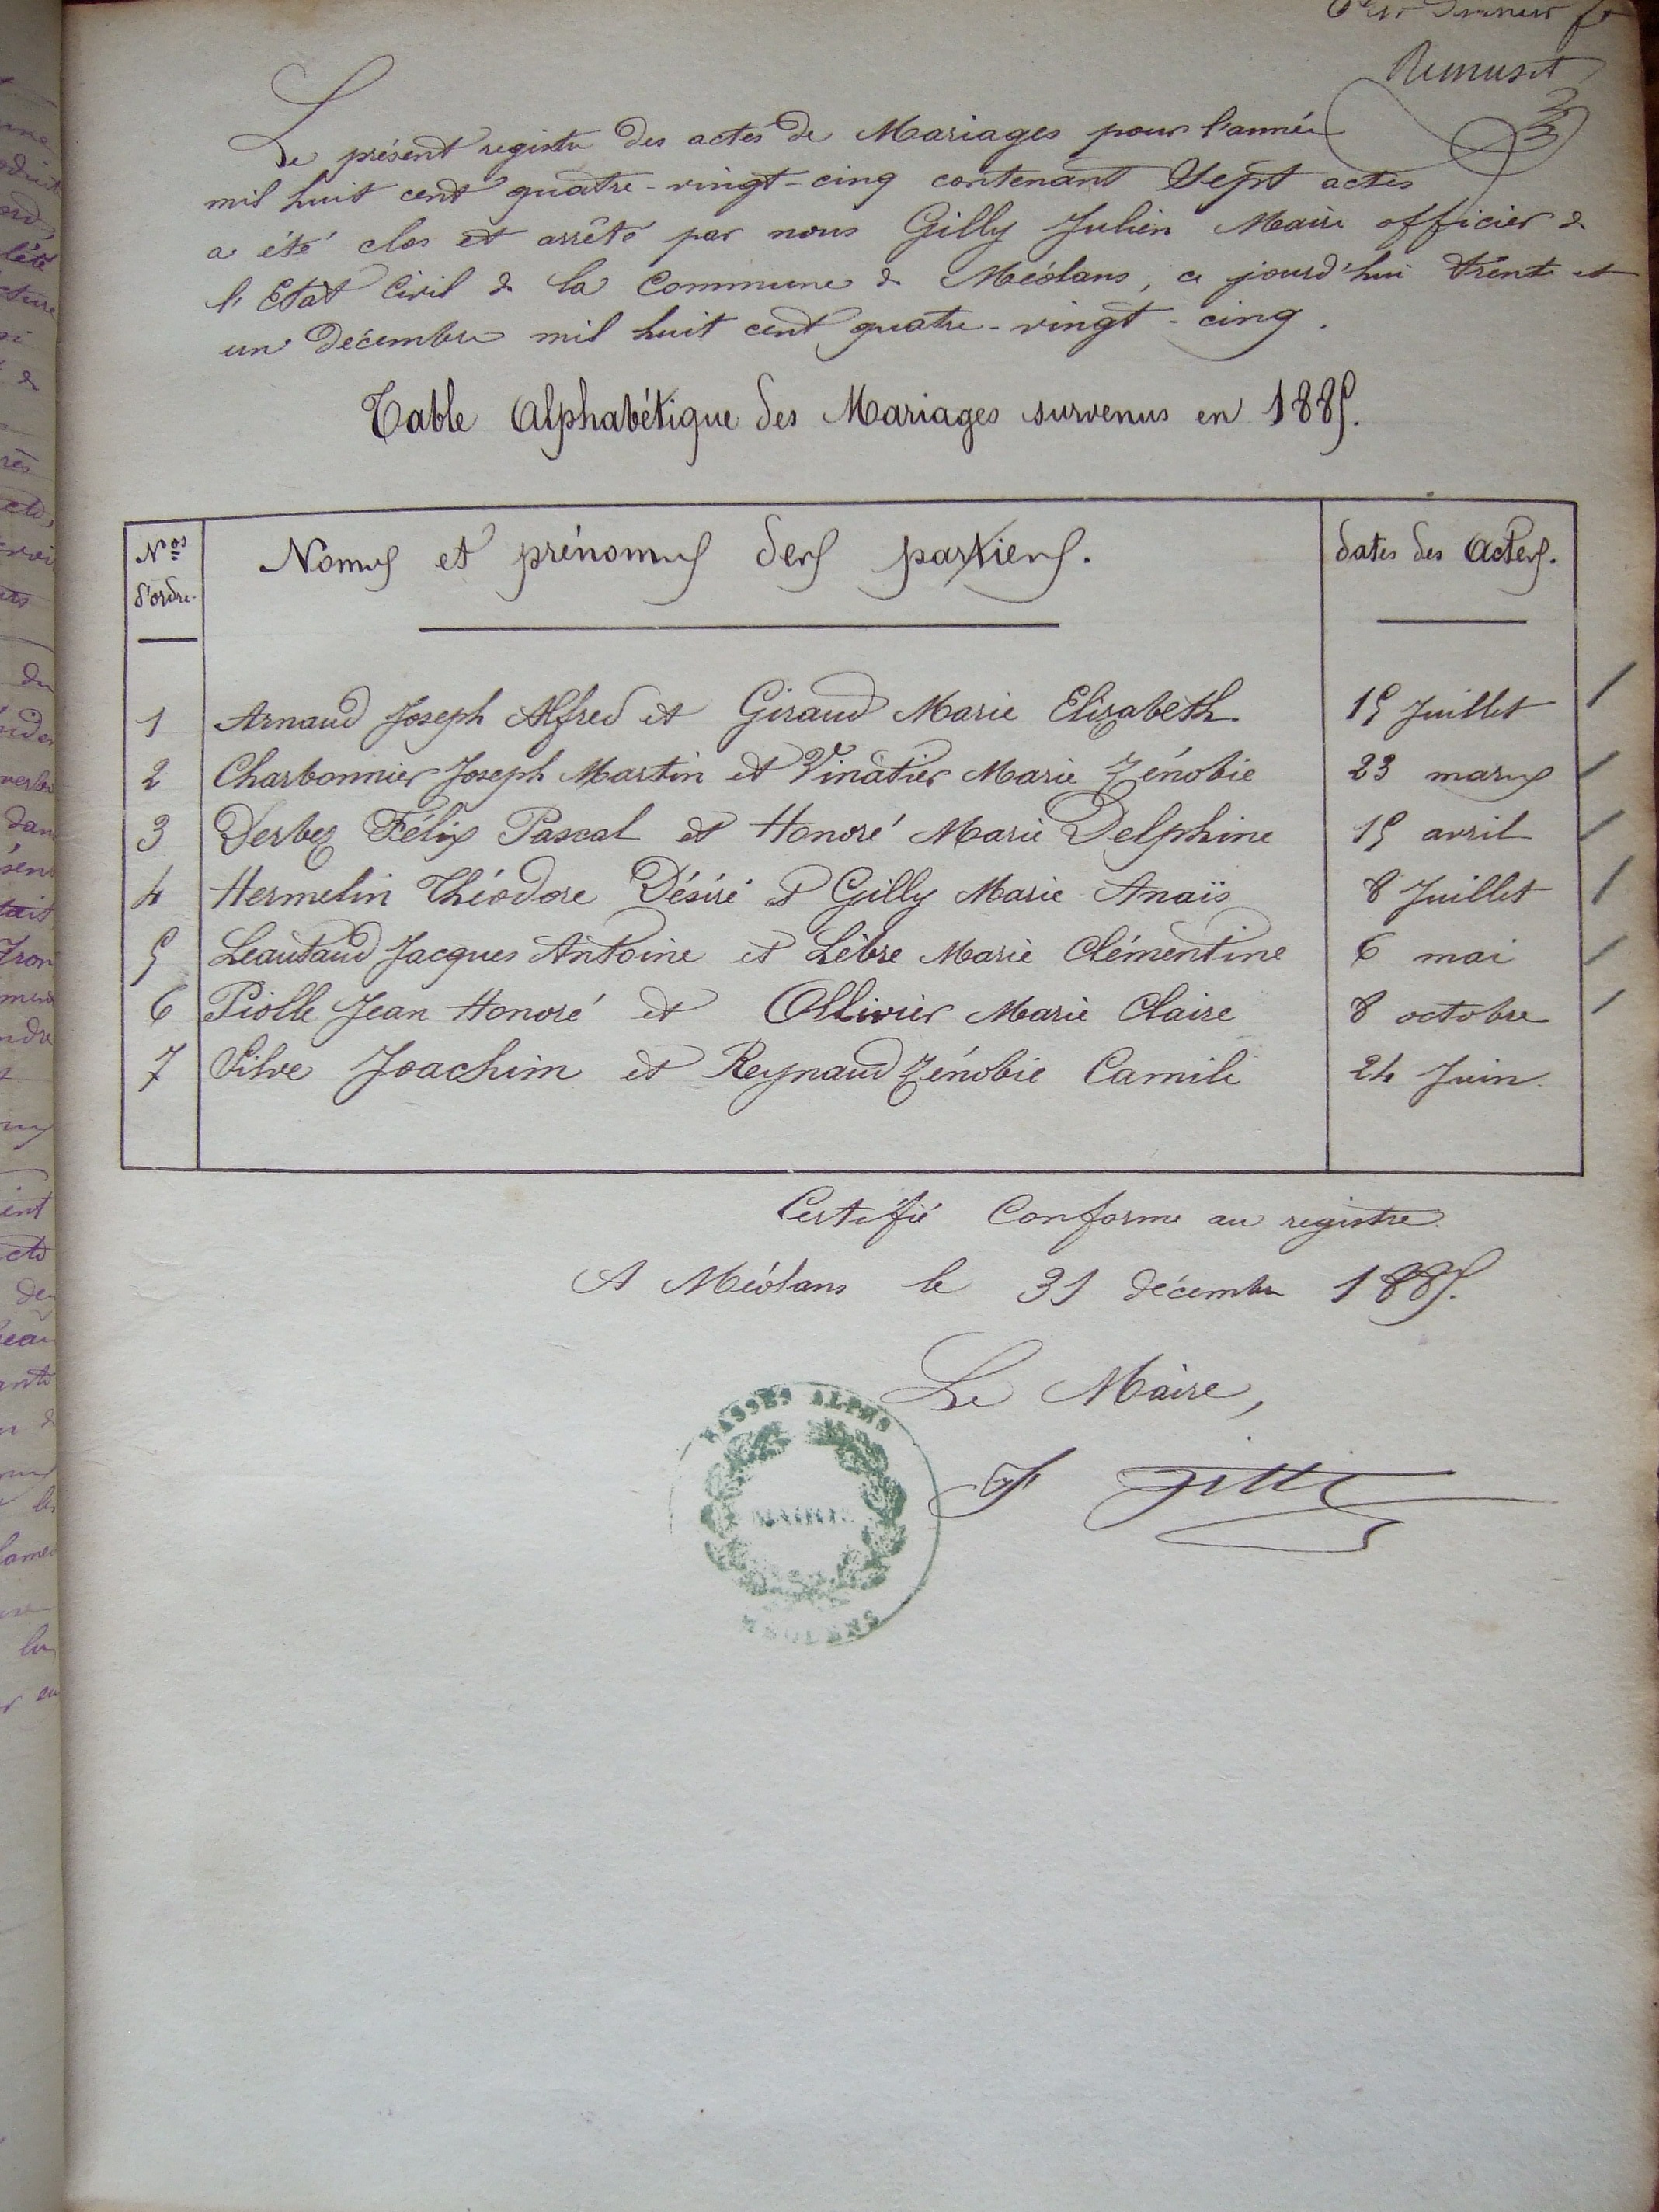 Remusat
Le présent registre des actes de Mariages pour l'année
mil huit cent quatre-vingt-cinq contenant Sept actes
a été clos et arrêté par nous Gilly Julien Maire officier de
l'Etat Civil de la Commune de Méolans, ce jourd'hui trente et
un décembre mil huit cent quatre-vingt-cinq.
Table Alphabétique des Mariages survenus en 1885.
Nos d'ordre
Noms et prénoms des parties.
dates des Actes.
1 Arnaud Joseph Alfred et Giraud Marie Elisabeth 15 Juillet
2 Charbonnier Joseph Martin et Vinatier Marie Zénobie 23 mars
3 Derbez Félix Pascal et Honoré Marie Delphine 15 avril
4 Hermelin Théodore Désiré et Gilly Marie Anaïs 8 Juillet
5 Leautaud Jacques Antoine et Lèbre Marie Clémentine 6 mai
6 Piolle Jean Honoré et Ollivier Marie Claire 8 octobre
7 Silve Joachim et Reynaud Zénobie Camile 24 Juin
Certifié Conforme au registre
A Méolans le 31 décembre 1885.
Le Maire,
BASSES ALPES
MAIRIE
MEOLANS